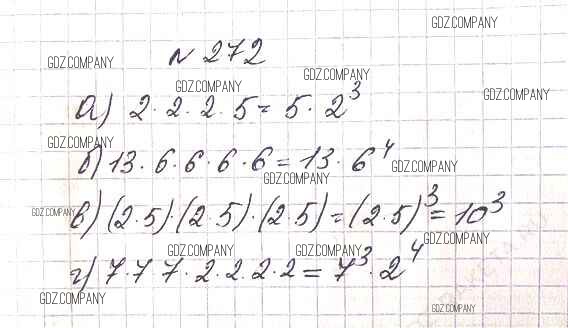 GDZ.COMPANY
№ 272
GDZ.COMPANY
GDZ.COMPANY
GDZ.COMPANY
GDZ.COMPANY
а) 2·2·2·5=5·2³
GDZ.COMPANY
б) 13·6·6·6·6=13·6⁴
GDZ.COMPANY
GDZ.COMPANY
GDZ.COMPANY
в) (2·5)·(2·5)·(2·5)=(2·5)³=10³
GDZ.COMPANY
GDZ.COMPANY
GDZ.COMPANY
г) 7·7·7·2·2·2·2=7³·2⁴
GDZ.COMPANY
GDZ.COMPANY